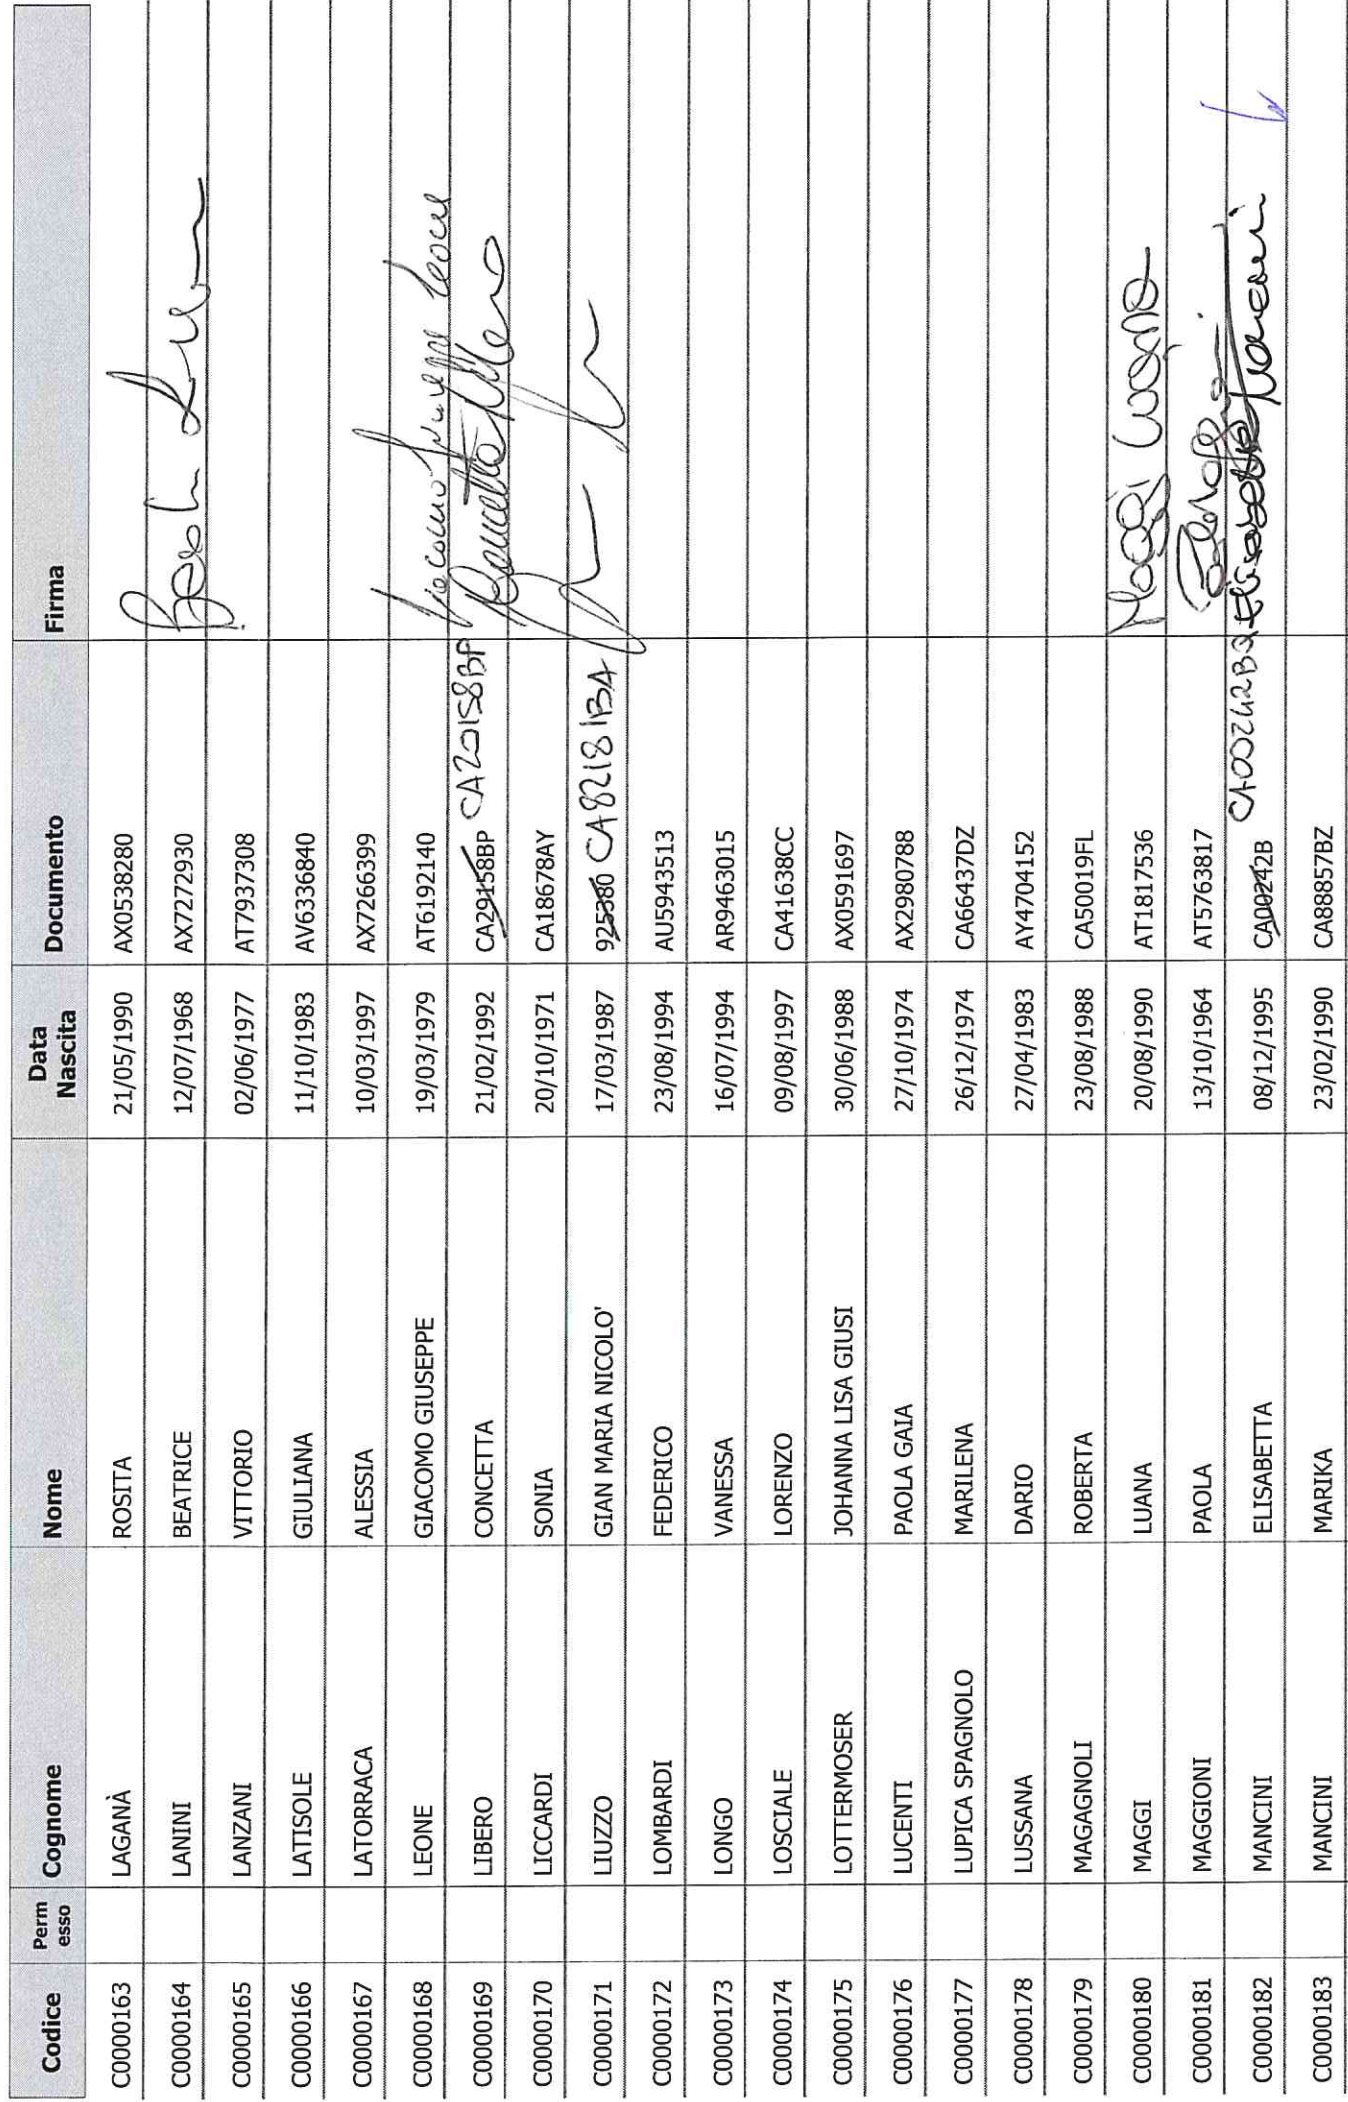 Codice Permesso Cognome Nome Data Nascita Documento Firma
C0000163 LAGANÀ ROSITA 21/05/1990 AX0538280
C0000164 LANINI BEATRICE 12/07/1968 AX7272930
C0000165 LANZANI VITTORIO 02/06/1977 AT7937308
C0000166 LATISOLE GIULIANA 11/10/1983 AV6336840
C0000167 LATORRACA ALESSIA 10/03/1997 AX7266399
C0000168 LEONE GIACOMO GIUSEPPE 19/03/1979 AT6192140 Giacomo Giuseppe Leone
C0000169 LIBERO CONCETTA 21/02/1992 CA29158BP CA20158BP Concetta Libero
C0000170 LICCARDI SONIA 20/10/1971 CA18678AY
C0000171 LIUZZO GIAN MARIA NICOLO' 17/03/1987 925380 CA82181BA
C0000172 LOMBARDI FEDERICO 23/08/1994 AU5943513
C0000173 LONGO VANESSA 16/07/1994 AR9463015
C0000174 LOSCIALE LORENZO 09/08/1997 CA41638CC
C0000175 LOTTERMOSER JOHANNA LISA GIUSI 30/06/1988 AX0591697
C0000176 LUCENTI PAOLA GAIA 27/10/1974 AX2980788
C0000177 LUPICA SPAGNOLO MARILENA 26/12/1974 CA66437DZ
C0000178 LUSSANA DARIO 27/04/1983 AY4704152
C0000179 MAGAGNOLI ROBERTA 23/08/1988 CA50019FL
C0000180 MAGGI LUANA 20/08/1990 AT1817536 Maggi Luana
C0000181 MAGGIONI PAOLA 13/10/1964 AT5763817
C0000182 MANCINI ELISABETTA 08/12/1995 CA00242B CA00242BQ Elisabetta Mancini
C0000183 MANCINI MARIKA 23/02/1990 CA88857BZ